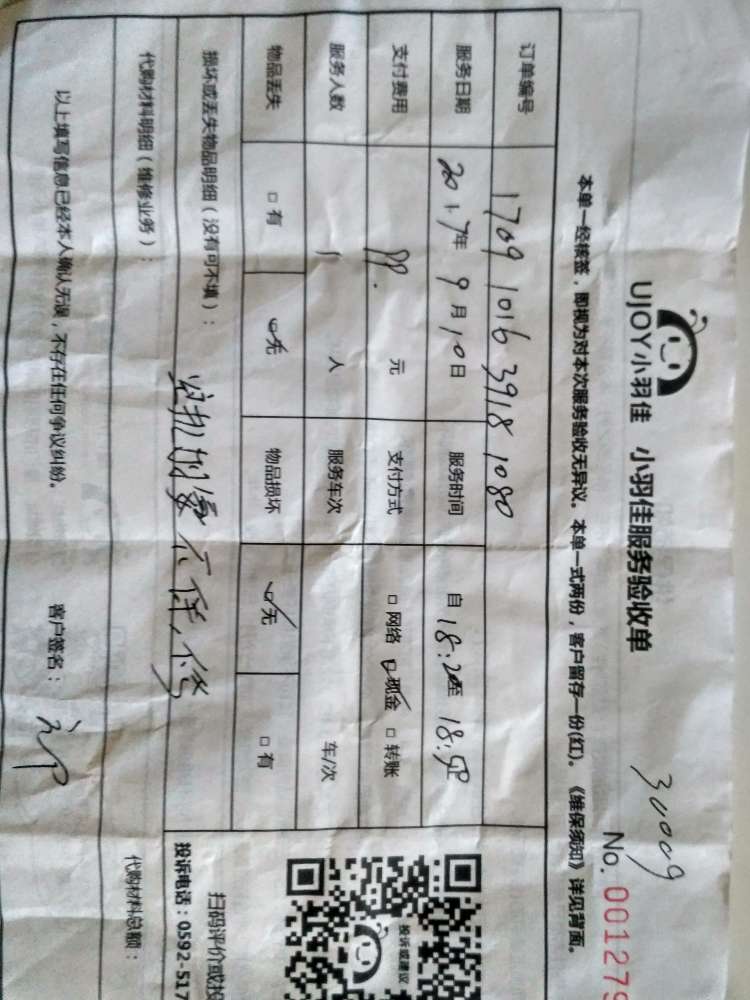 UJOY小羽佳 小羽佳服务验收单
30009
No. 001279
本单一经核签，即视为对本次服务验收无异议。本单一式两份，客户留存一份(红)。《维保须知》详见背面。
订单编号 1709 1016 3918 1080
服务日期 2017年 9月10日 服务时间 自 18:20至 18:50
支付费用 元 支付方式 □ 网络 ☑ 现金 □ 转账
服务人数 1 人 服务车次 车/次
物品丢失 □ 有 ☑ 无 物品损坏 ☑ 无 □ 有
损坏或丢失物品明细（没有可不填）：
不保修
代购材料明细（维修业务）： 代购材料总额：
以上填写信息已经本人确认无误，不存在任何争议纠纷。 客户签名：
投诉或建议
扫码评价或投
投诉电话：0592-517